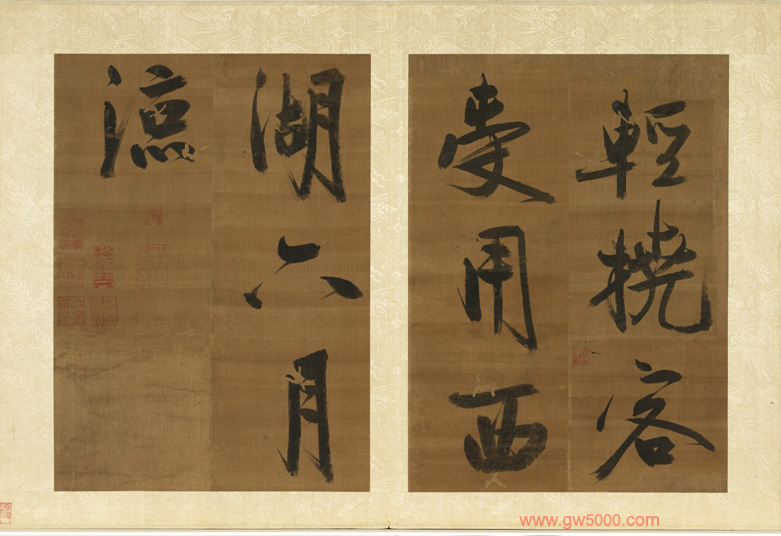 輕橈客
受用西
湖六月
涼
www.gw5000.com